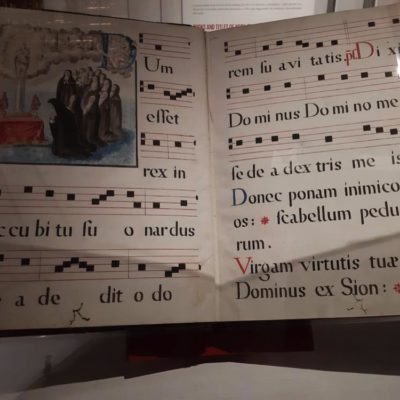 D
Um
eſſet
rex in
ccu bi tu ſu o nardus
e a de dit o do
rem ſu avi tatis. Di xi
Do mi nus Do mi no me
ſe de a dex tris me is
Donec ponam inimico
os: * ſcabellum pedu
rum.
Virgam virtutis tuæ
Dominus ex Sion: *